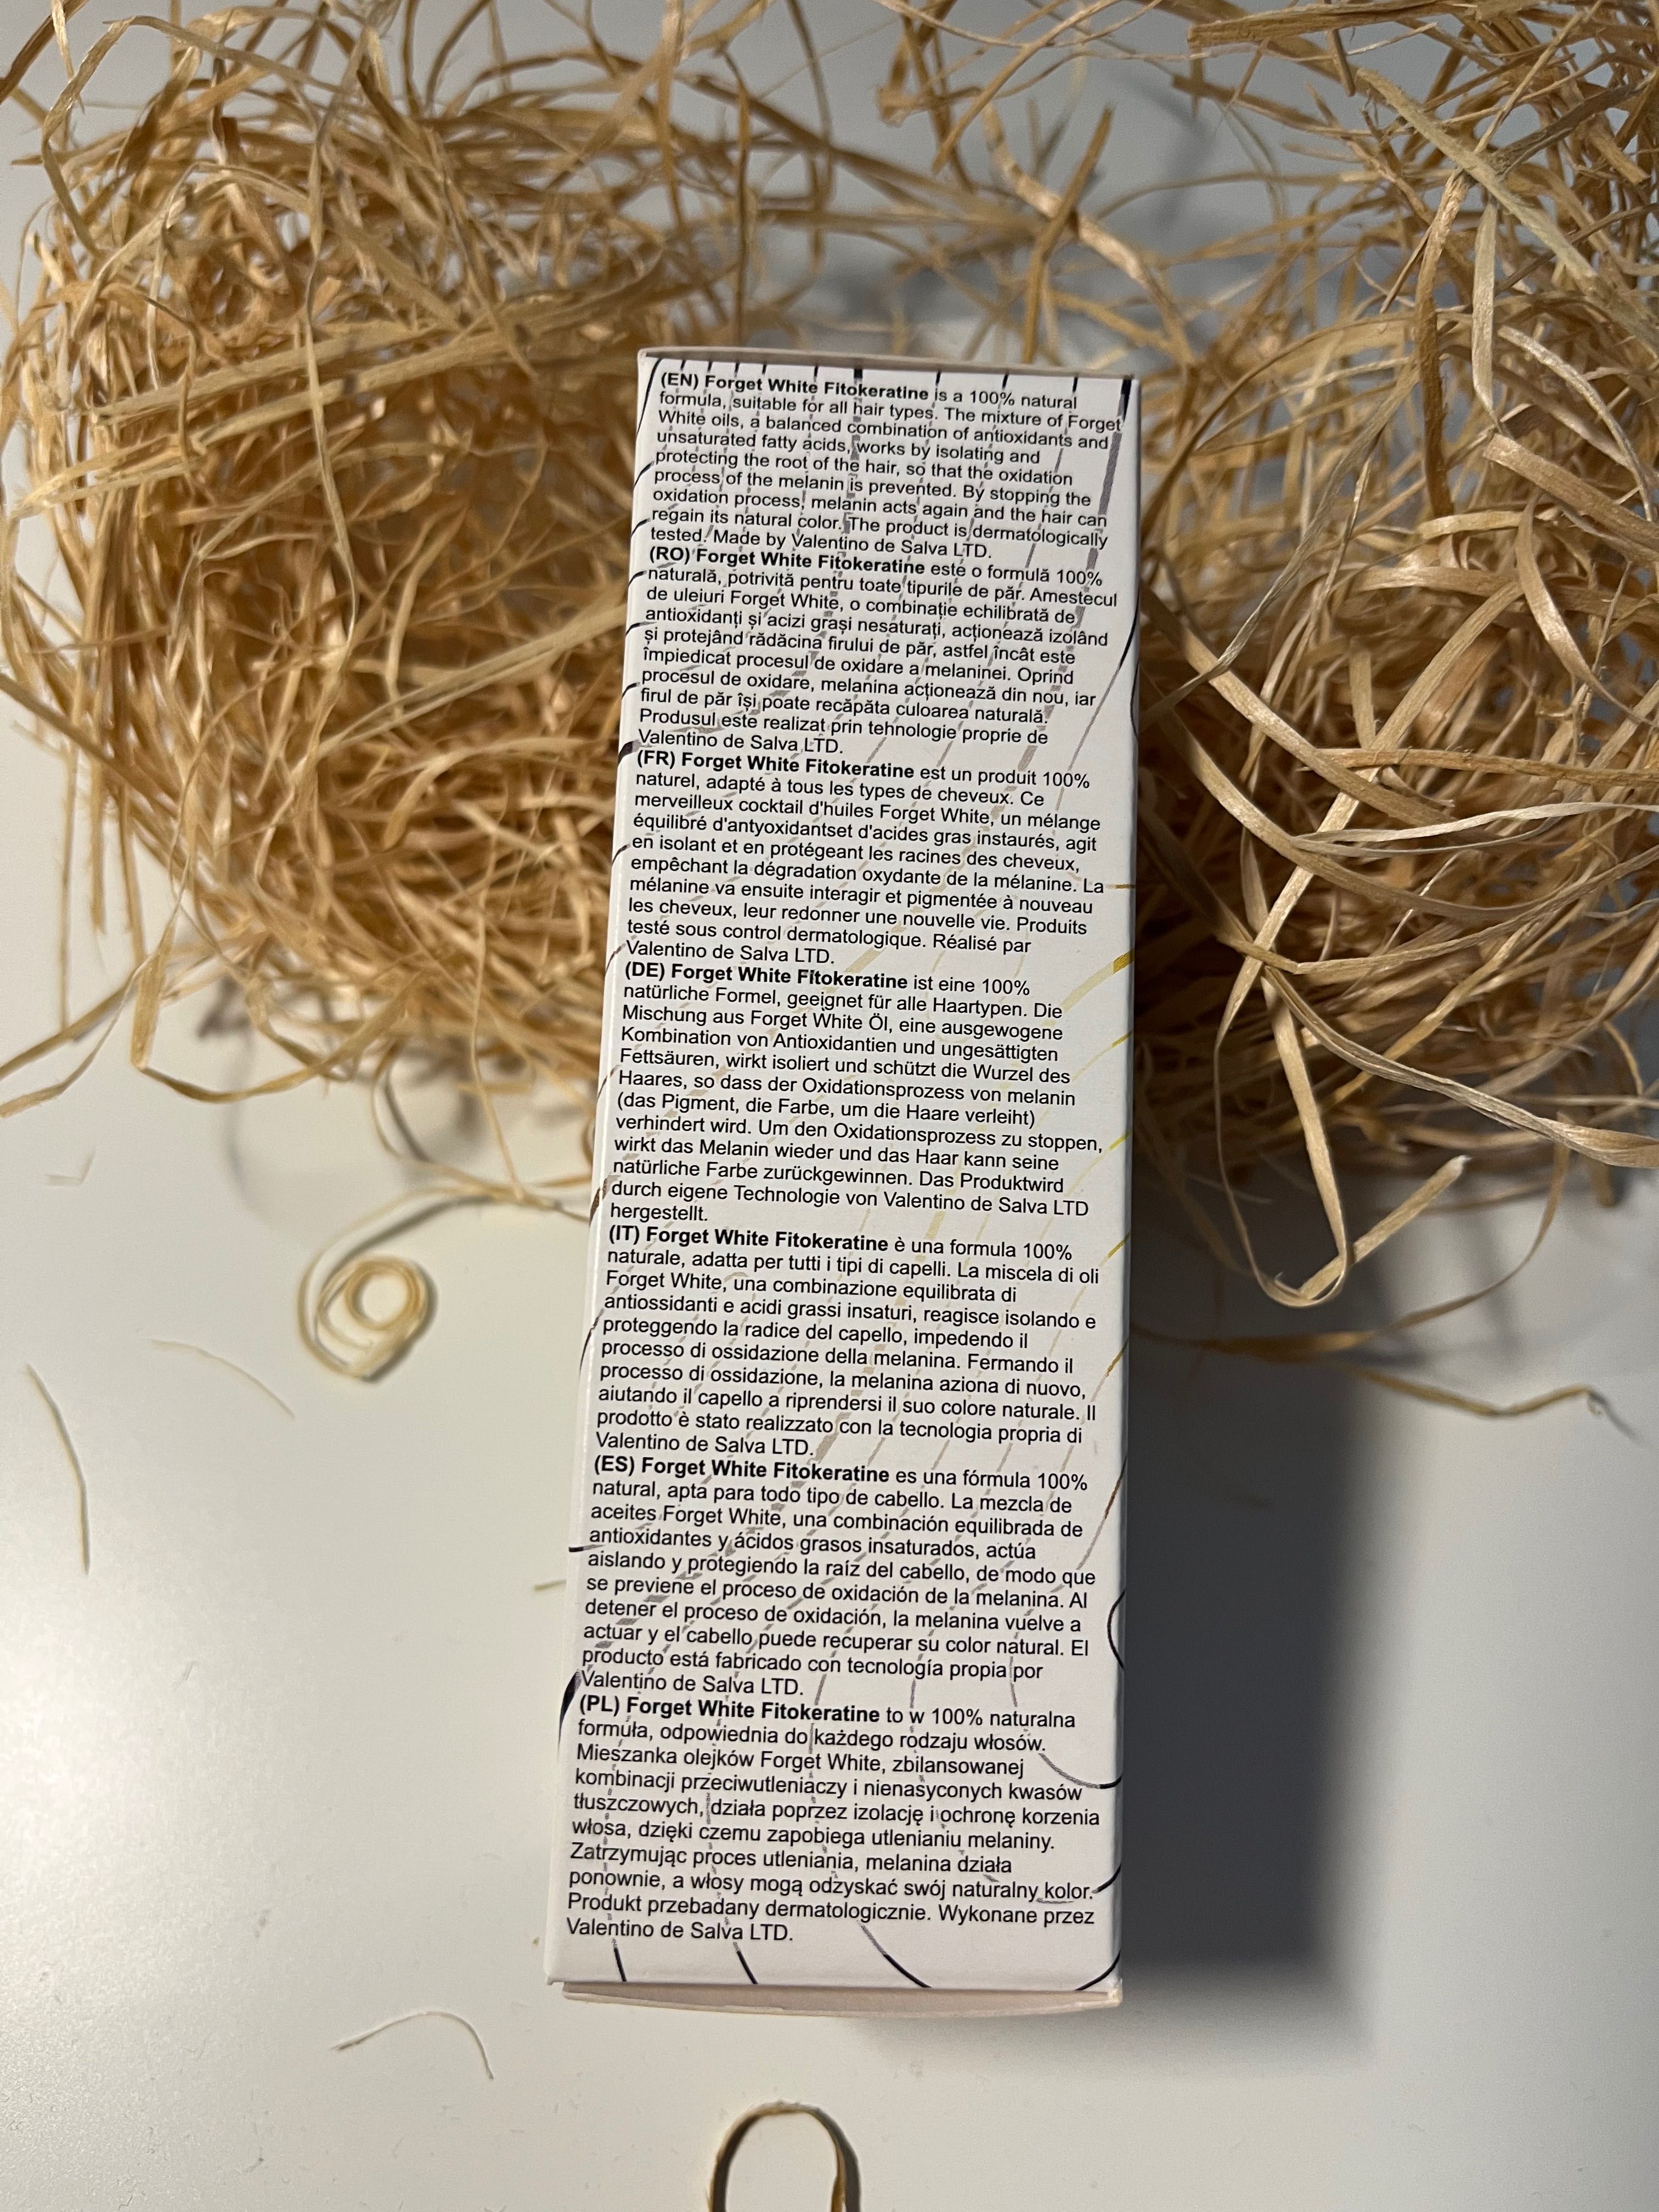 (EN) Forget White Fitokeratine is a 100% natural
formula, suitable for all hair types. The mixture of Forget
White oils, a balanced combination of antioxidants and
unsaturated fatty acids, works by isolating and
protecting the root of the hair, so that the oxidation
process of the melanin is prevented. By stopping the
oxidation process, melanin acts again and the hair can
regain its natural color. The product is dermatologically
tested. Made by Valentino de Salva LTD.
(RO) Forget White Fitokeratine este o formulă 100%
naturală, potrivită pentru toate tipurile de păr. Amestecul
de uleiuri Forget White, o combinație echilibrată de
antioxidanți și acizi grași nesaturați, acționează izolând
și protejând rădăcina firului de păr, astfel încât este
împiedicat procesul de oxidare a melaninei. Oprind
procesul de oxidare, melanina acționează din nou, iar
firul de păr își poate recăpăta culoarea naturală.
Produsul este realizat prin tehnologie proprie de
Valentino de Salva LTD.
(FR) Forget White Fitokeratine est un produit 100%
naturel, adapté à tous les types de cheveux. Ce
merveilleux cocktail d'huiles Forget White, un mélange
équilibré d'antyoxidantset d'acides gras instaurés, agit
en isolant et en protégeant les racines des cheveux,
empêchant la dégradation oxydante de la mélanine. La
mélanine va ensuite interagir et pigmentée à nouveau
les cheveux, leur redonner une nouvelle vie. Produits
testé sous control dermatologique. Réalisé par
Valentino de Salva LTD.
(DE) Forget White Fitokeratine ist eine 100%
natürliche Formel, geeignet für alle Haartypen. Die
Mischung aus Forget White Öl, eine ausgewogene
Kombination von Antioxidantien und ungesättigten
Fettsäuren, wirkt isoliert und schützt die Wurzel des
Haares, so dass der Oxidationsprozess von melanin
(das Pigment, die Farbe, um die Haare verleiht)
verhindert wird. Um den Oxidationsprozess zu stoppen,
wirkt das Melanin wieder und das Haar kann seine
natürliche Farbe zurückgewinnen. Das Produktwird
durch eigene Technologie von Valentino de Salva LTD
hergestellt.
(IT) Forget White Fitokeratine è una formula 100%
naturale, adatta per tutti i tipi di capelli. La miscela di oli
Forget White, una combinazione equilibrata di
antiossidanti e acidi grassi insaturi, reagisce isolando e
proteggendo la radice del capello, impedendo il
processo di ossidazione della melanina. Fermando il
processo di ossidazione, la melanina aziona di nuovo,
aiutando il capello a riprendersi il suo colore naturale. Il
prodotto è stato realizzato con la tecnologia propria di
Valentino de Salva LTD.
(ES) Forget White Fitokeratine es una fórmula 100%
natural, apta para todo tipo de cabello. La mezcla de
aceites Forget White, una combinación equilibrada de
antioxidantes y ácidos grasos insaturados, actúa
aislando y protegiendo la raíz del cabello, de modo que
se previene el proceso de oxidación de la melanina. Al
detener el proceso de oxidación, la melanina vuelve a
actuar y el cabello puede recuperar su color natural. El
producto está fabricado con tecnología propia por
Valentino de Salva LTD.
(PL) Forget White Fitokeratine to w 100% naturalna
formuła, odpowiednia do każdego rodzaju włosów.
Mieszanka olejków Forget White, zbilansowanej
kombinacji przeciwutleniaczy i nienasyconych kwasów
tłuszczowych, działa poprzez izolację i ochronę korzenia
włosa, dzięki czemu zapobiega utlenianiu melaniny.
Zatrzymując proces utleniania, melanina działa
ponownie, a włosy mogą odzyskać swój naturalny kolor.
Produkt przebadany dermatologicznie. Wykonane przez
Valentino de Salva LTD.